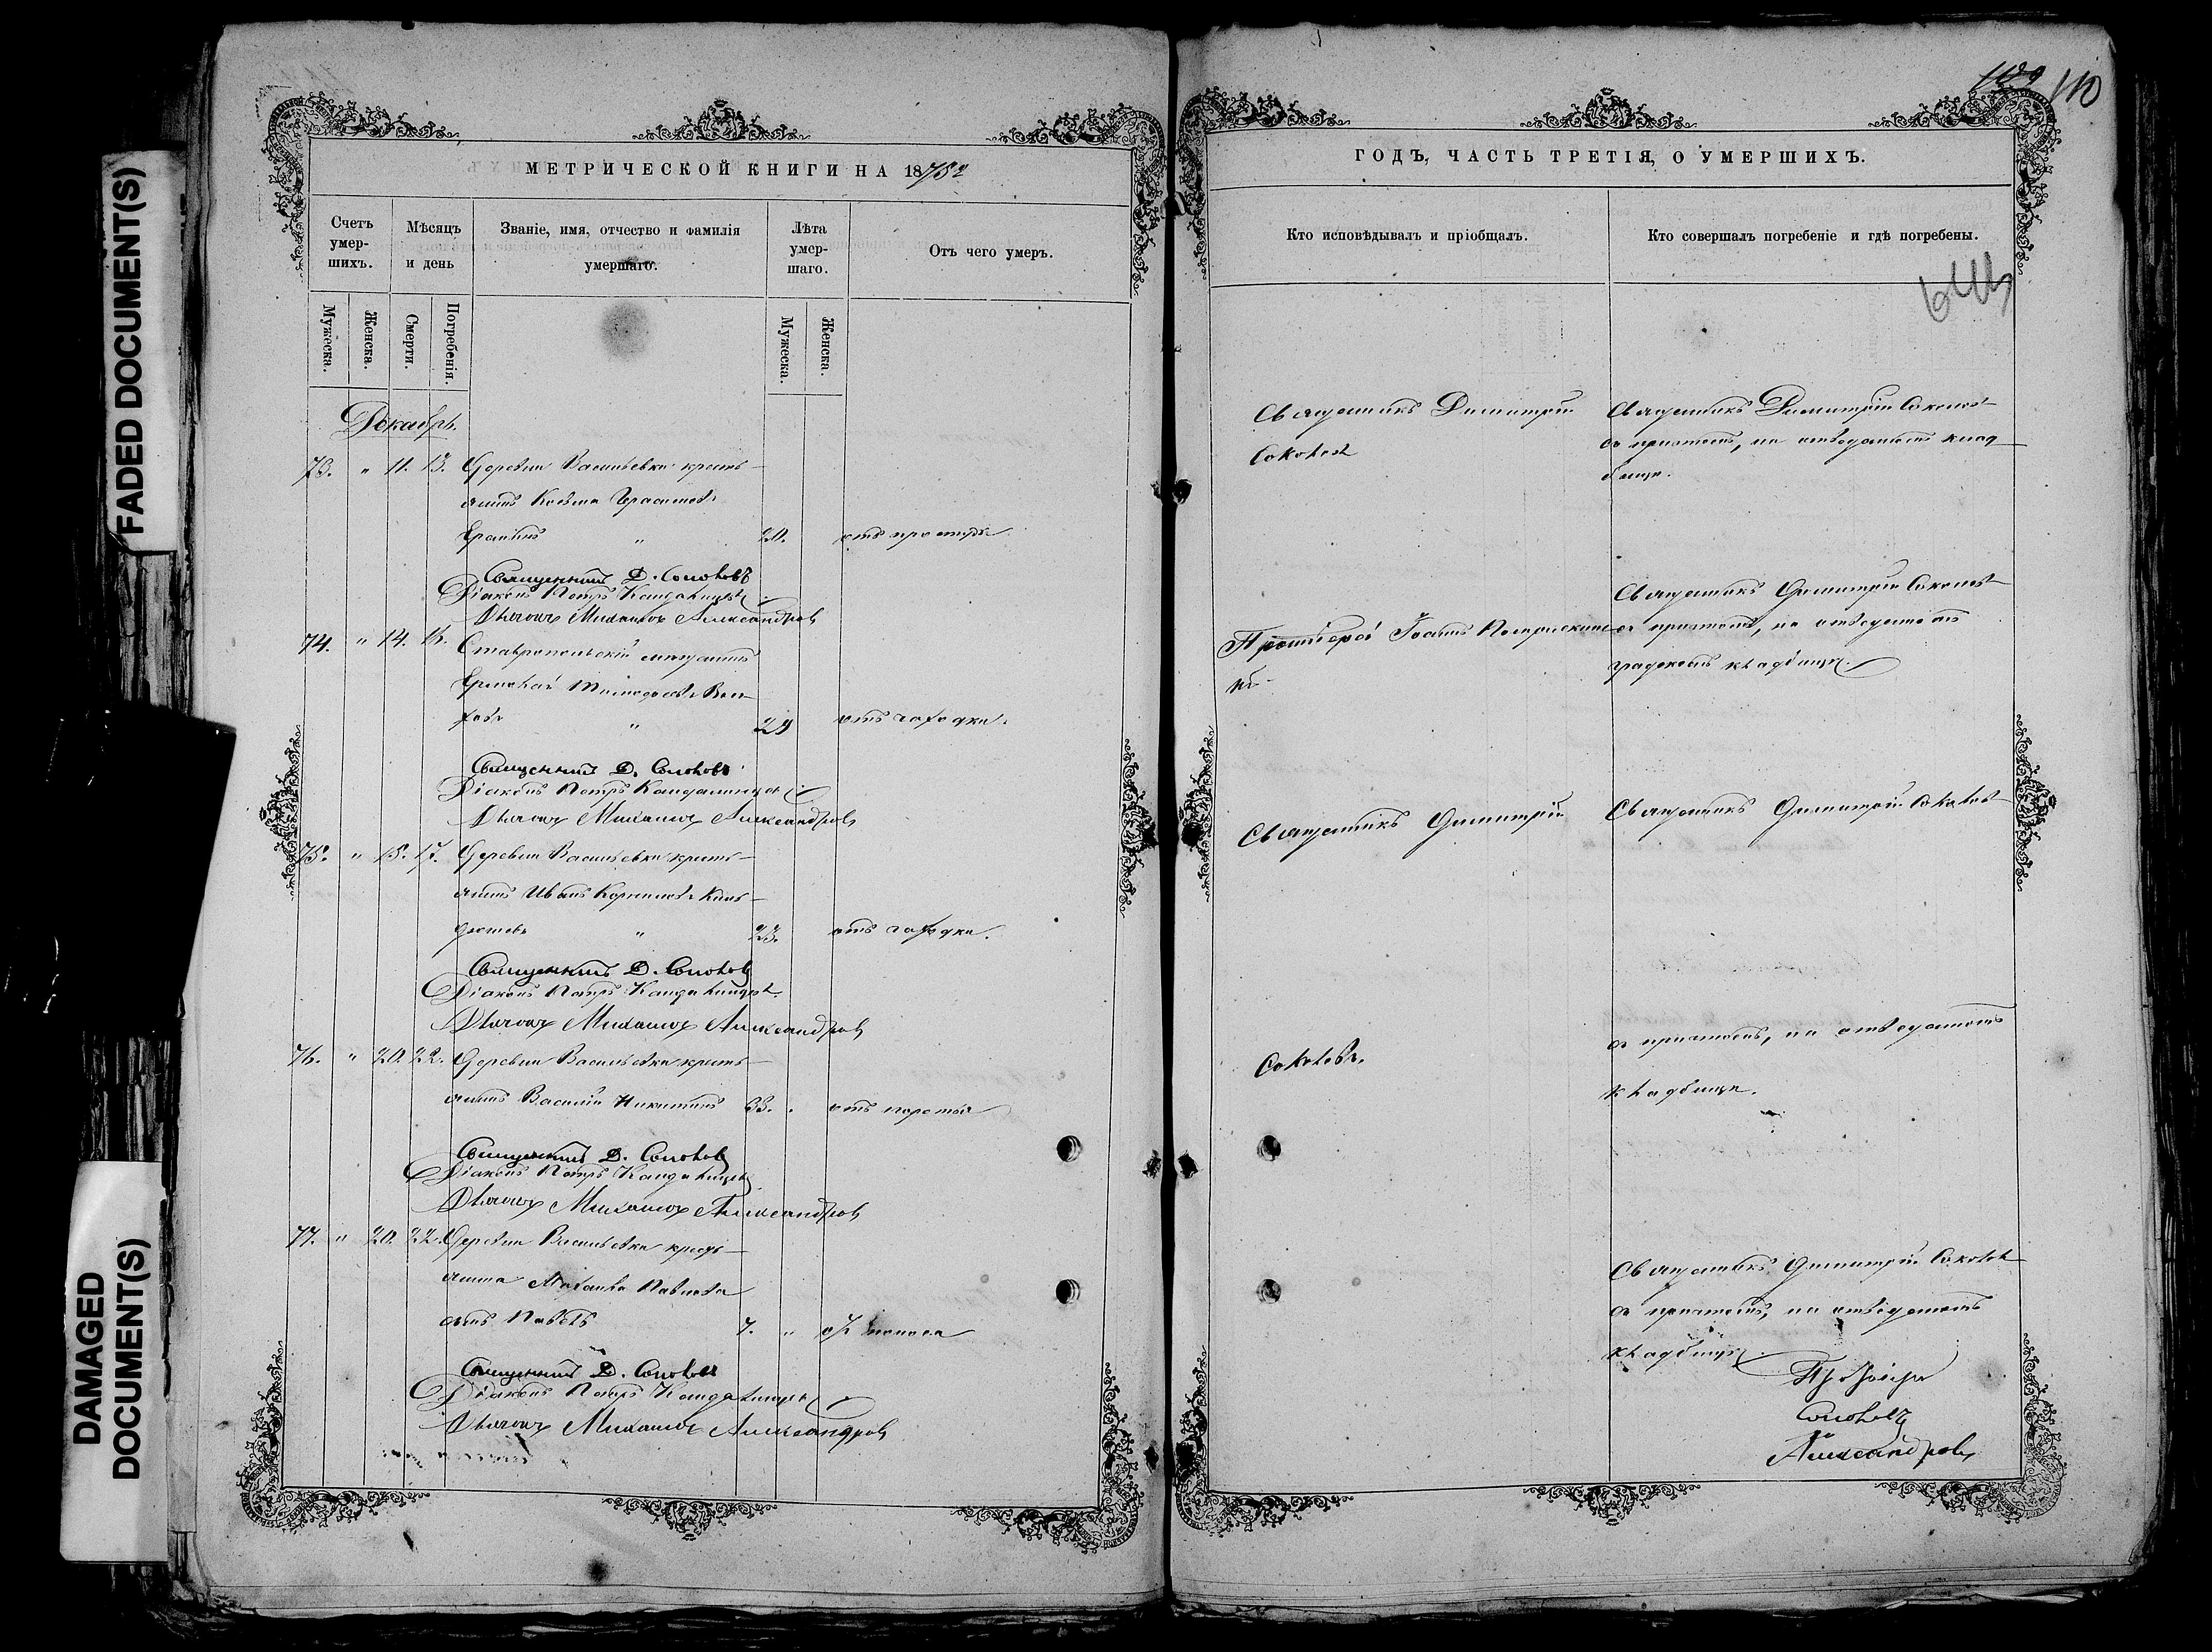 FADED DOCUMENT(S)
DAMAGED DOCUMENT(S)
МЕТРИЧЕСКОЙ КНИГИ НА 1875й
Счетъ умер-шихъ.
Мѣсяцъ и день
Званіе, имя, отчество и фамилія умершаго.
Лѣта умер-шаго.
Отъ чего умеръ.
Мужеска.
Женска.
Смерти.
Погребенія.
Мужеска.
Женска.
Декабрь.
73. " 11. 13. Деревни Васильевки кресть-
янинъ Козьма Герасимовъ
" 20. отъ простуды
Священникъ Д. Соколовъ
Діаконъ Петръ
Дьячокъ Михаилъ Александровъ
74. " 14. 16. Ставропольскій мѣщанинъ
Ермолай
" 29 отъ чахотки.
Священникъ Д. Соколовъ
Діаконъ Петръ
Дьячокъ Михаилъ Александровъ
75. " 15. 17. Деревни Васильевки кресть-
янинъ Иванъ Корниловъ
" 23. отъ чахотки.
Священникъ Д. Соколовъ
Діаконъ Петръ
Дьячокъ Михаилъ Александровъ
76. " 20. 22. Деревни Васильевки кресть-
янинъ Василій Никитинъ 63. " отъ
Священникъ Д. Соколовъ
Діаконъ Петръ
Дьячокъ Михаилъ Александровъ
77. " 20. 22. Деревни Васильевки кресть-
янина Михаила Павлова
сынъ 7. " отъ поноса
Священникъ Д. Соколовъ
Діаконъ Петръ
Дьячокъ Михаилъ Александровъ
110
ГОДЪ, ЧАСТЬ ТРЕТІЯ, О УМЕРШИХЪ.
Кто исповѣдывалъ и пріобщалъ.
Кто совершалъ погребеніе и гдѣ погребены.
Священникъ Димитрій
Соколовъ
Священникъ Димитрій Соколовъ
съ причтомъ, на отведенномъ клад-
бище.
Протоіерей Іоаннъ
Священникъ Димитрій Соколовъ
съ причтомъ, на отведенномъ
градскомъ кладбище.
Священникъ Димитрій
Соколовъ.
Священникъ Димитрій Соколовъ
съ причтомъ, на отведенномъ
кладбище.
Священникъ Димитрій Соколовъ
съ причтомъ, на отведенномъ
кладбище
Протоіерей
Соколовъ
Александровъ